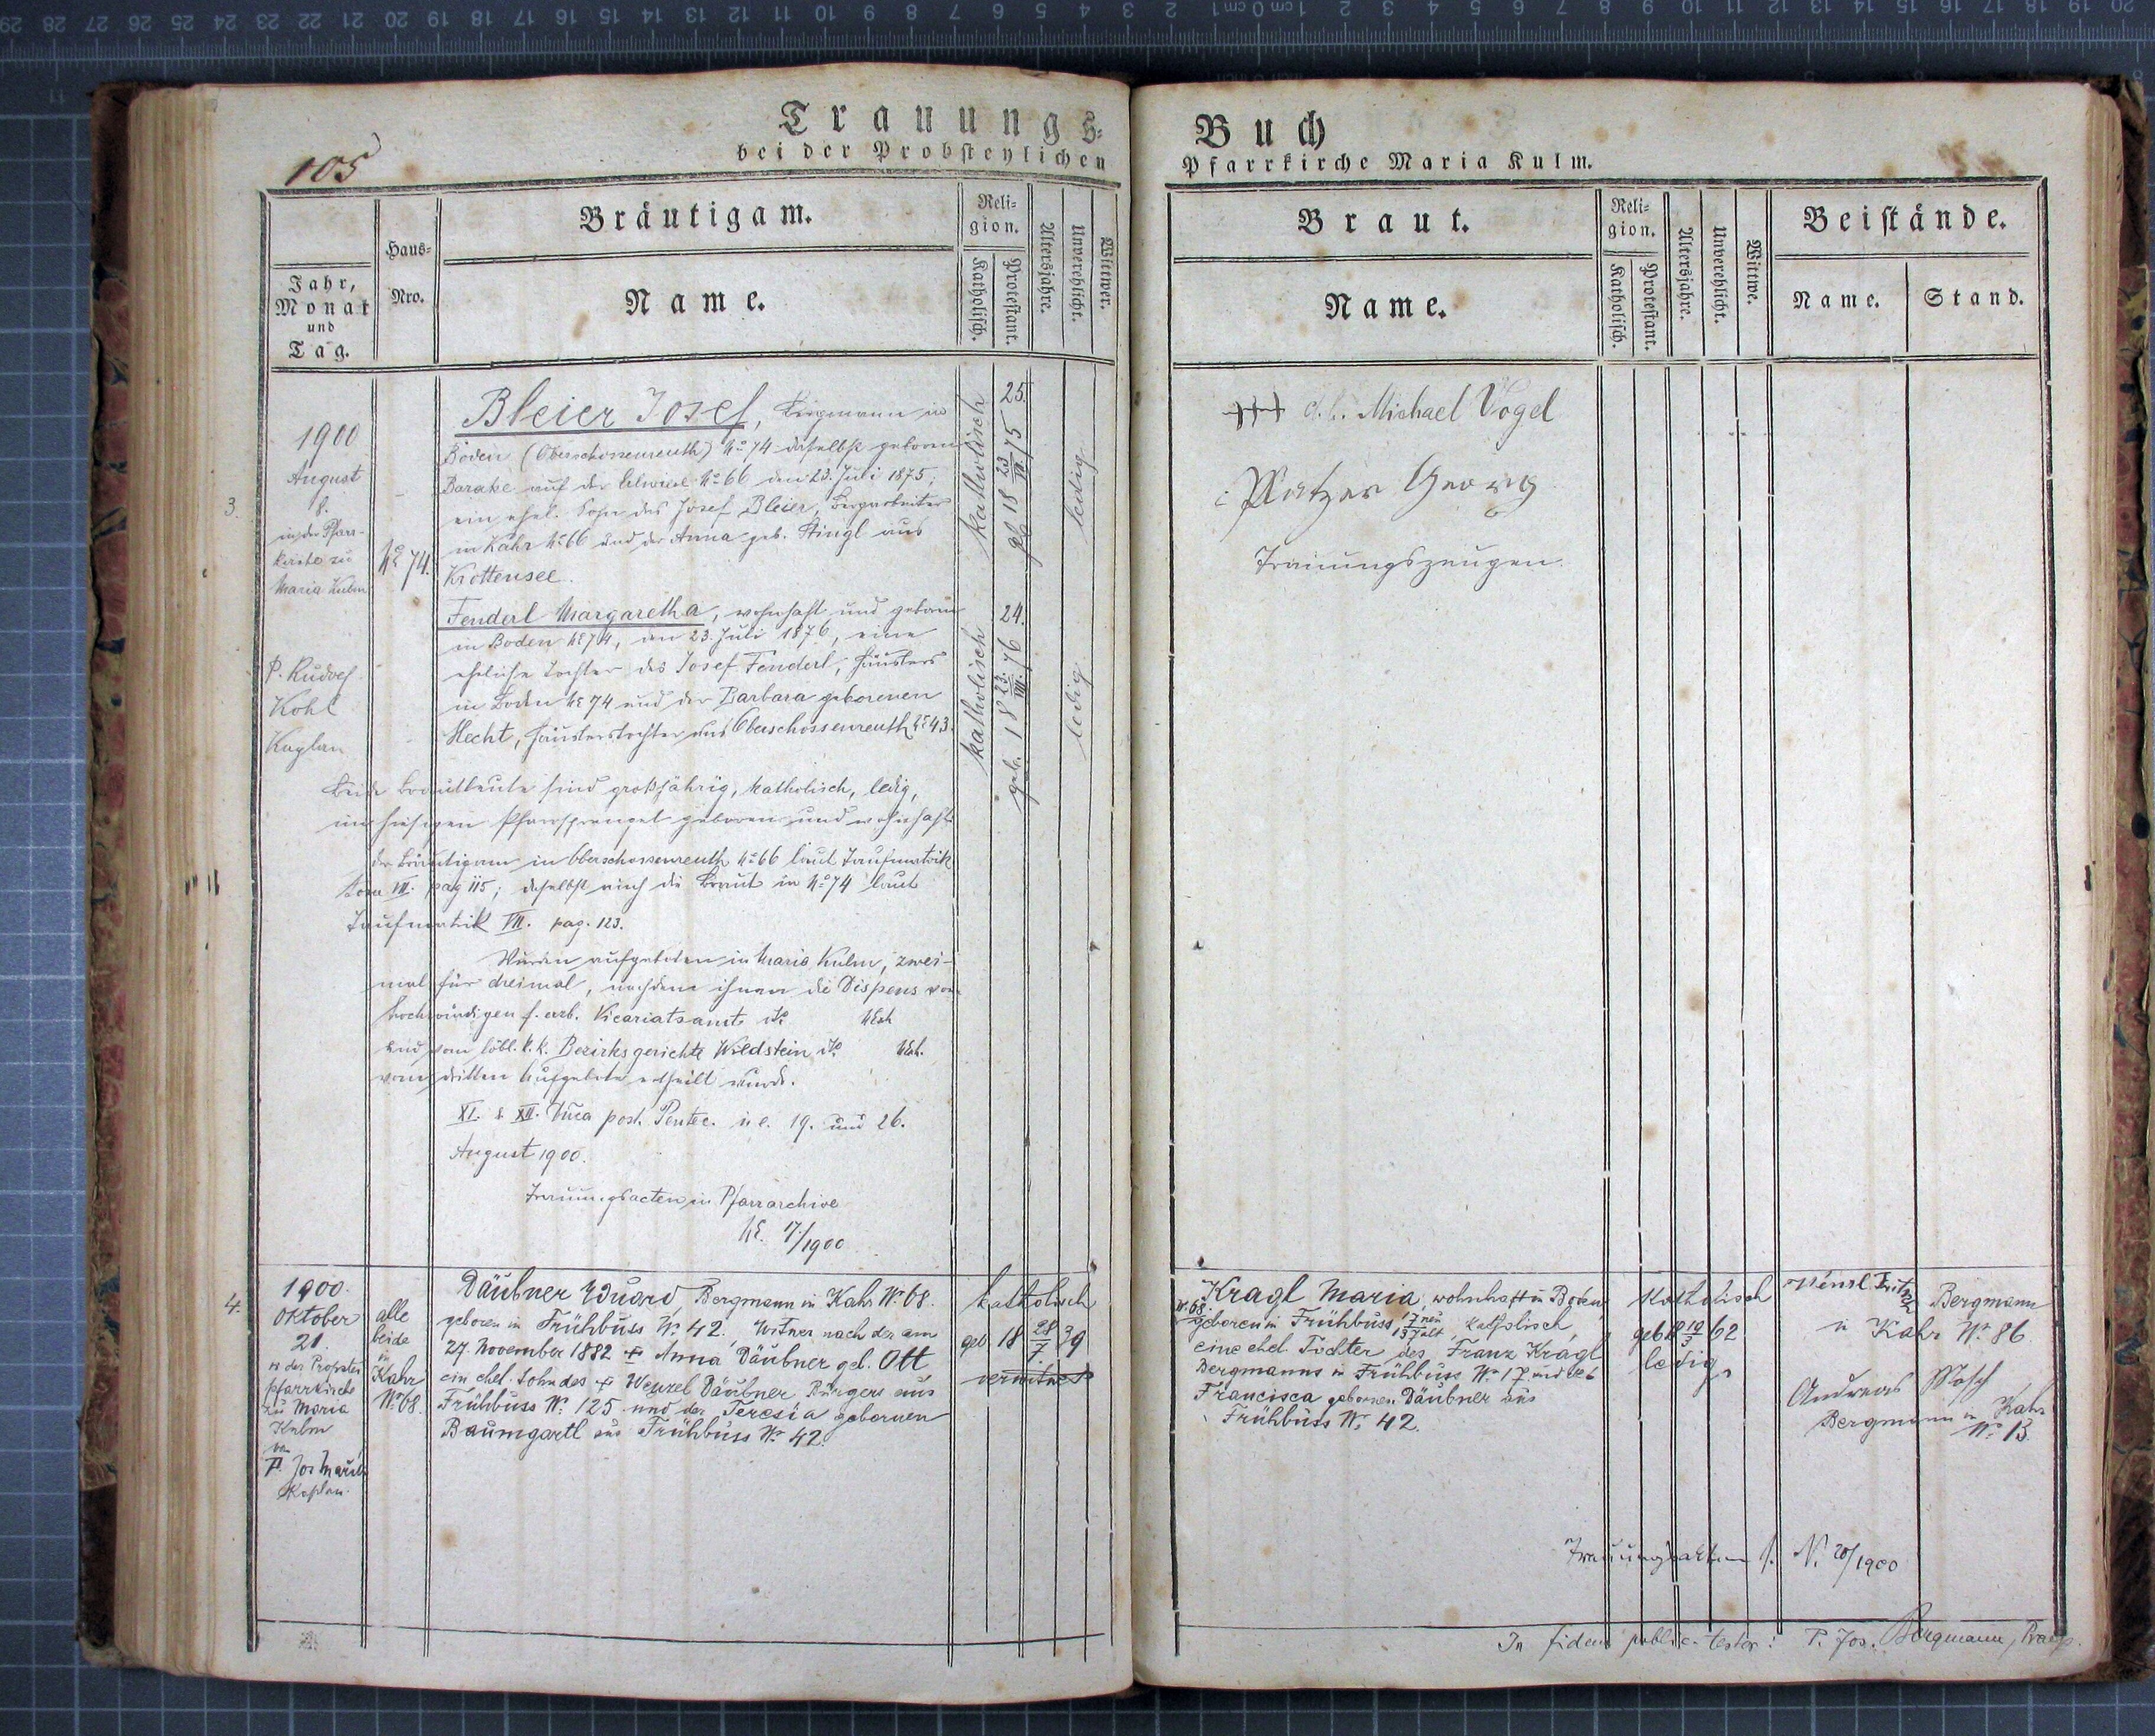 Trauungs=
bei der Probsteylichen
105
Jahr,
Monat
und
Tag.
Haus=
Nro.
Bräutigam.
Name.
Reli=
gion.
Katholisch.
Protestant.
Altersjahre.
Unverehlicht.
Wittwer.
3.
1900
August
in der Pfarr-
kirche zu
Maria Kulm
P. Rudolf
Kohl
Kaplan
No 74.
Bleier Josef, Bergmann in
Boden (Oberschossenreuth) No 74 daselbst geboren
Barake auf der No 66 den 23. Juli 1875;
ein ehel. Sohn des Josef Bleier, Bergarbeiter
in Kahr No 66 und der Anna geb. Stingl aus
Krottensee.
katholisch
25.
18 23/VII 75
ledig
Fenderl Margaretha, wohnhaft und geboren
in Boden No 74, den 23. Juli 1876, eine
eheliche Tochter des Josef Fenderl, Häuslers
in Boden No 74 und der Barbara geborenen
Hecht, Häuslerstochter aus Oberschossenreuth No 43.
katholisch
24.
geb. 18 23./VII. 76
ledig
Beide Brautleute sind großjährig, katholisch, ledig,
im hiesigen Pfarrsprengel geboren und wohnhaft
der Bräutigam in Oberschossenreuth No 66 laut Taufmatrik
tom VII. pag 115; daselbst auch die Braut in No 74 laut
Taufmatrik VII. pag. 123.
Wurden aufgeboten in Maria Kulm, zwei-
mal für dreimal, nachdem ihnen die Dispens vom
hochwürdigen f. erzb. Vicariatsamte
und vom löbl. k. k. Bezirksgerichte Wildstein
vom dritten Aufgebote ertheilt wurde.
XI. & XII. Dnca post. Pentec. i. e. 19. und 26.
August 1900.
Trauungsacten in Pfarrarchive
No. 17./1900
4.
1900.
Oktober
21.
in der Propstei
pfarrkirche
zu Maria
Kulm
von
P. Jos
Kaplan.
alle
beide
in
Kahr
No. 68.
Däubner Eduard, Bergmann in Kahr No. 68.
geboren in Frühbuss No. 42. Witwer nach der am
27. November 1882 + Anna Däubner geb. Ott
ein ehel. Sohn des + Wenzel Däubner Bürgers aus
Frühbuss No. 125 und der Teresia gebornen
Baumgartl aus Frühbuss No. 42.
katholisch
geb 18 28/7. 39
verwitwet
Buch
Pfarrkirche Maria Kulm.
Braut.
Name.
Reli=
gion.
Katholisch.
Protestant.
Altersjahre.
Unverehlicht.
Wittwe.
Beistände.
Name.
Stand.
+++ d. i. Michael Vogel
Georg
Trauungszeugen.
Kragl Maria, wohnhaft in Boden
No. 68.
geboren in Frühbuss 17 neu 137 alt, katholisch,
eine ehel. Tochter des Franz Kragl
Bergmanns in Frühbuss No. 17 und der
Francisca gebornen Däubner aus
Frühbuss No. 42.
katholisch
geb 18 19/3 62
ledig
Wenzl
Bergmann
in Kahr No. 86
Andreas
Bergmann in Kahr
No. 13.
Trauungsakten f. N. 20/1900
In fidem public. testor: P. Jos. Bergmann,